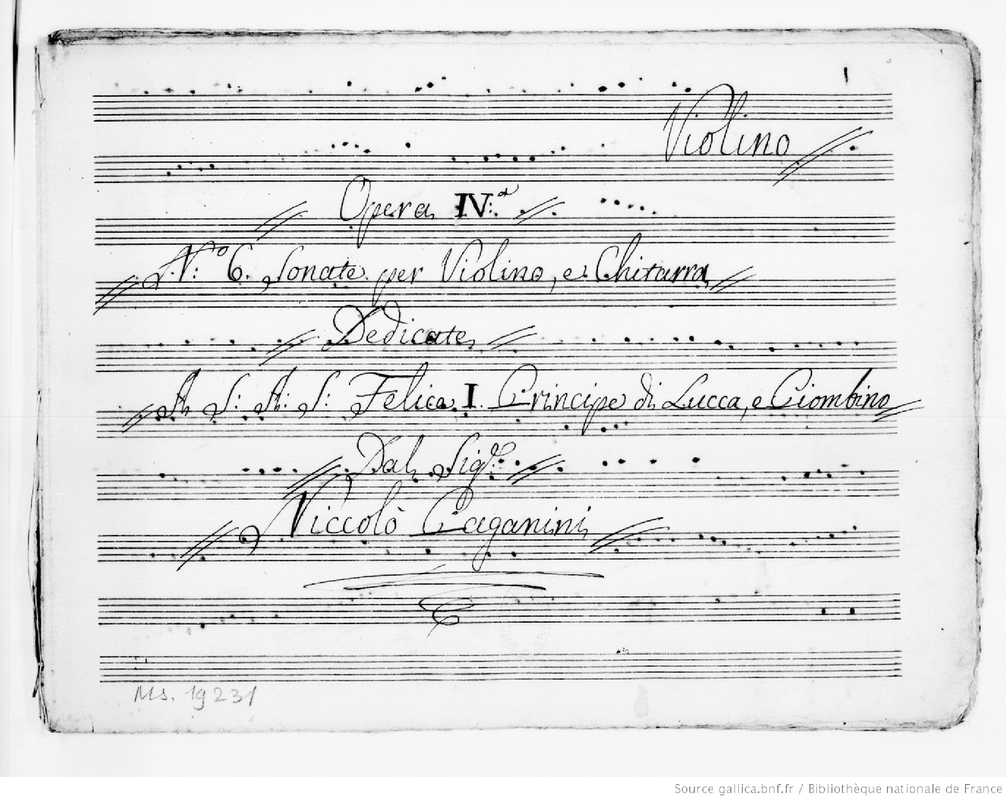 1
Violino
Opera IV:ª
N:º 6. Sonate per Violino, e Chitarra
Dedicate
A S: A: S: Felice I. Principe di Lucca, e Piombino
Dal Sig:re
Niccolò Paganini
Ms. 19231
Source gallica.bnf.fr / Bibliothèque nationale de France